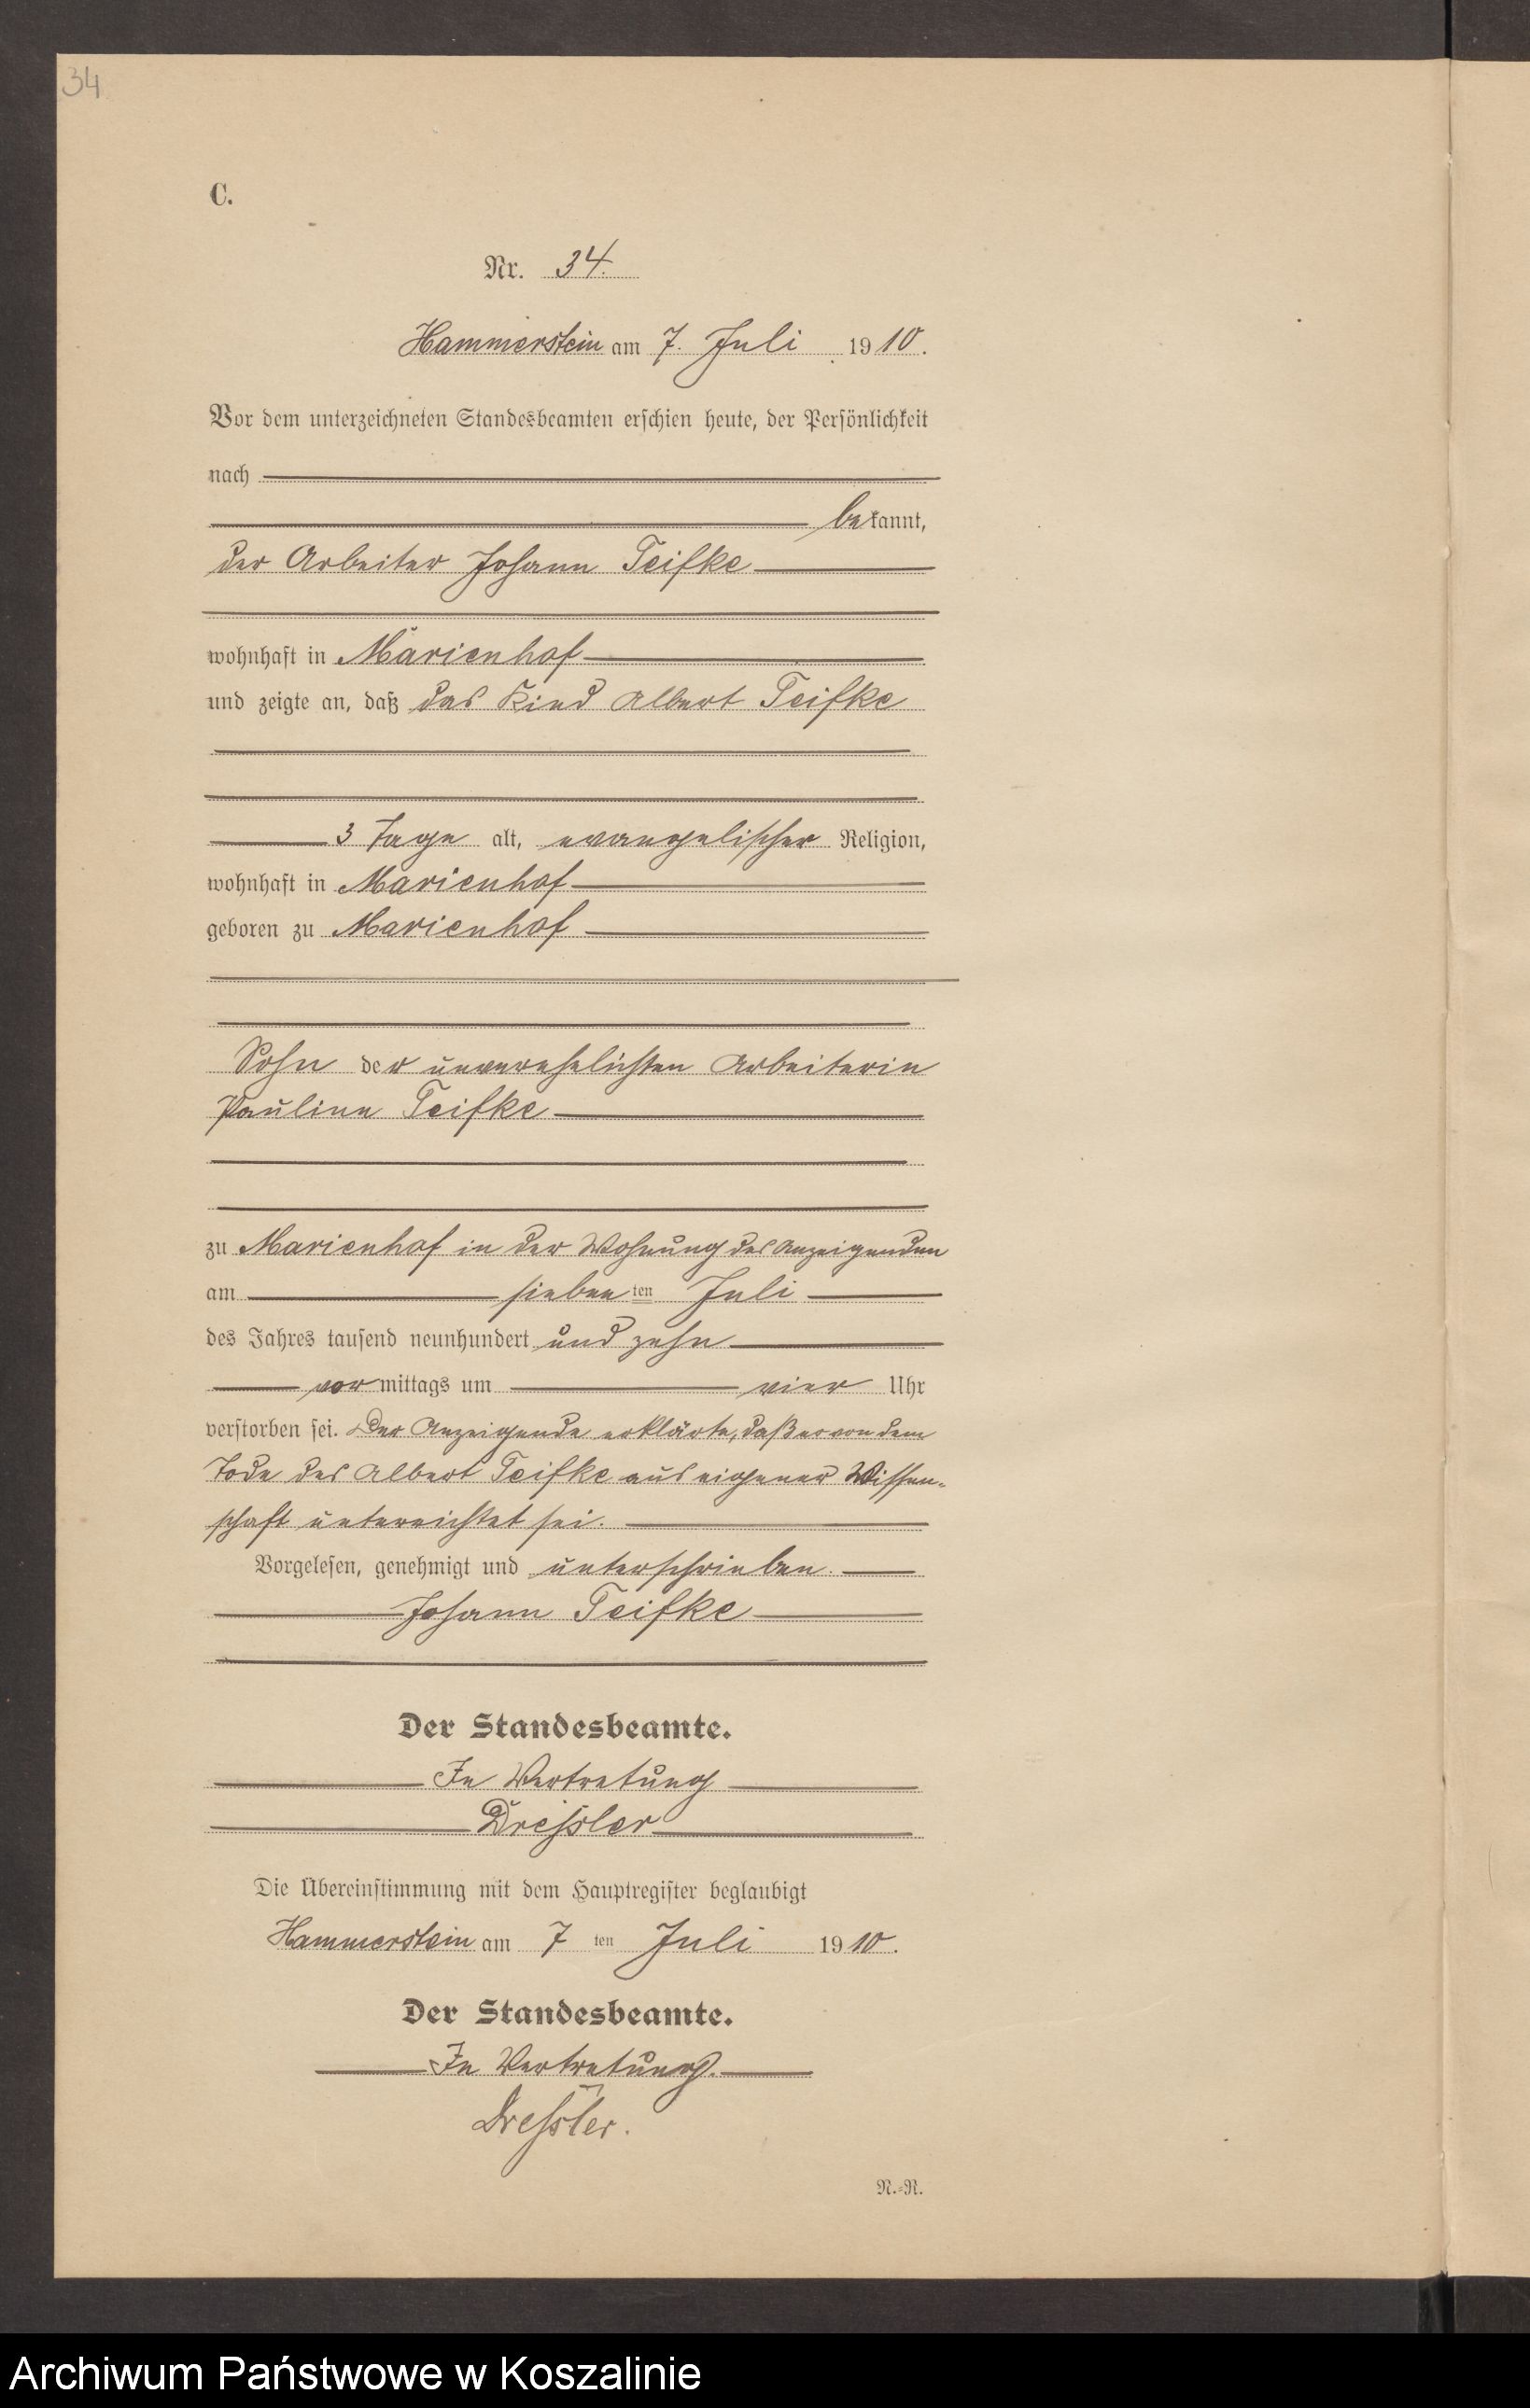 34
C.
Nr. 34.
Hammerstein am 7. Juli 1910.
Vor dem unterzeichneten Standesbeamten erschien heute, der Persönlichkeit
nach
bekannt,
der Arbeiter Johann Teifke
wohnhaft in Marienhof
und zeigte an, daß das Kind Albert Teifke
3 Tage alt, evangelischer Religion,
wohnhaft in Marienhof
geboren zu Marienhof
Sohn der unverehelichten Arbeiterin
Pauline Teifke
zu Marienhof in der Wohnung des Anzeigenden
am siebenten Juli
des Jahres tausend neunhundert und zehn
vormittags um vier Uhr
verstorben sei. Der Anzeigende erklärte, daß er von dem
Tode des Albert Teifke aus eigener Wissen-
schaft unterrichtet sei.
Vorgelesen, genehmigt und unterschrieben.
Johann Teifke
Der Standesbeamte.
In Vertretung
Dreßler
Die Übereinstimmung mit dem Hauptregister beglaubigt
Hammerstein am 7ten Juli 1910.
Der Standesbeamte.
In Vertretung.
Dreßler.
N.-R.
Archiwum Państwowe w Koszalinie